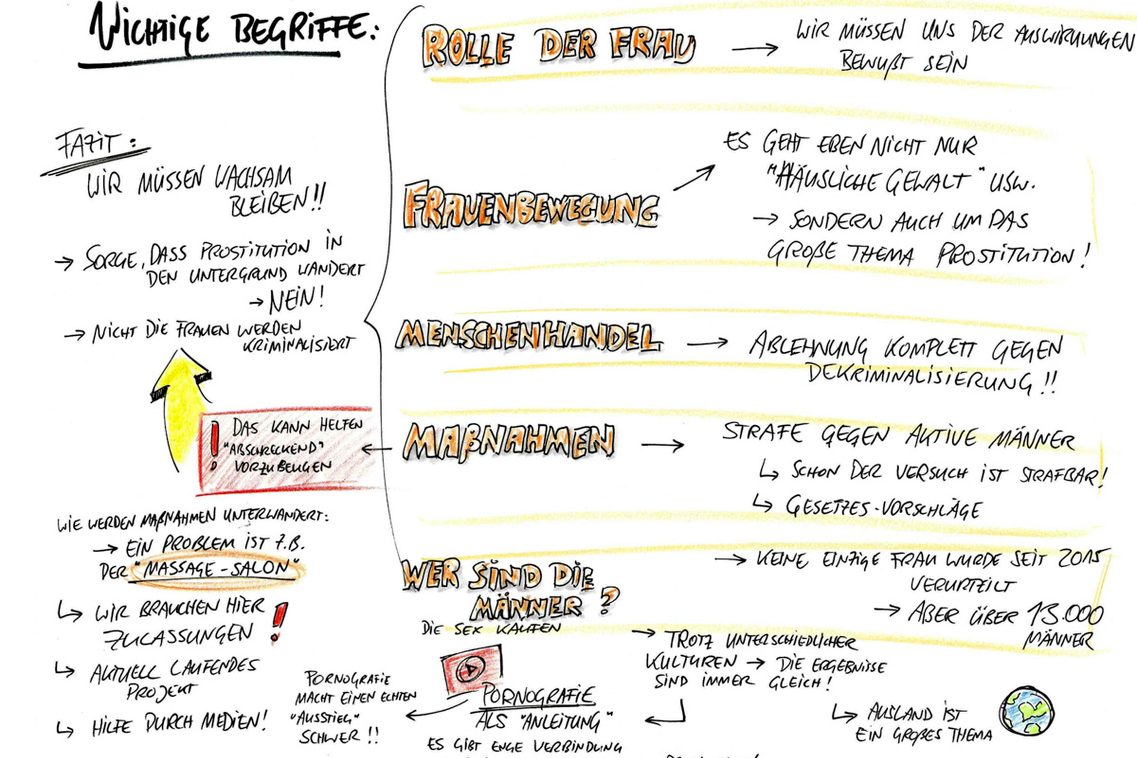 WICHTIGE BEGRIFFE:
ROLLE DER FRAU
→ WIR MÜSSEN UNS DER AUSWIRKUNGEN
BEWUßT SEIN
FRAUENBEWEGUNG
ES GEHT EBEN NICHT NUR
"HÄUSLICHE GEWALT" USW.
→ SONDERN AUCH UM DAS
GROßE THEMA PROSTITUTION!
MENSCHENHANDEL
→ ABLEHNUNG KOMPLETT GEGEN
DEKRIMINALISIERUNG!!
MAßNAHMEN
→ STRAFE GEGEN AKTIVE MÄNNER
↳ SCHON DER VERSUCH IST STRAFBAR!
↳ GESETZES-VORSCHLÄGE
! DAS KANN HELFEN
"ABSCHRECKEND"
VORZUBEUGEN
WER SIND DIE
MÄNNER?
DIE SEX KAUFEN
→ KEINE EINZIGE FRAU WURDE SEIT 2015
VERURTEILT
→ ABER ÜBER 13.000
MÄNNER
→ TROTZ UNTERSCHIEDLICHER
KULTUREN → DIE ERGEBNISSE
SIND IMMER GLEICH!
↳ AUSLAND IST
EIN GROßES THEMA
PORNOGRAFIE
ALS "ANLEITUNG"
ES GIBT ENGE VERBINDUNG
PORNOGRAFIE
MACHT EINEN ECHTEN
"AUSSTIEG"
SCHWER!!
FAZIT:
WIR MÜSSEN WACHSAM
BLEIBEN!!
→ SORGE, DASS PROSTITUTION IN
DEN UNTERGRUND WANDERT
→ NEIN!
→ NICHT DIE FRAUEN WERDEN
KRIMINALISIERT
WIE WERDEN MAßNAHMEN UNTERWANDERT:
→ EIN PROBLEM IST Z.B.
DER "MASSAGE-SALON"
↳ WIR BRAUCHEN HIER
ZULASSUNGEN !
↳ AKTUELL LAUFENDES
PROJEKT
↳ HILFE DURCH MEDIEN!